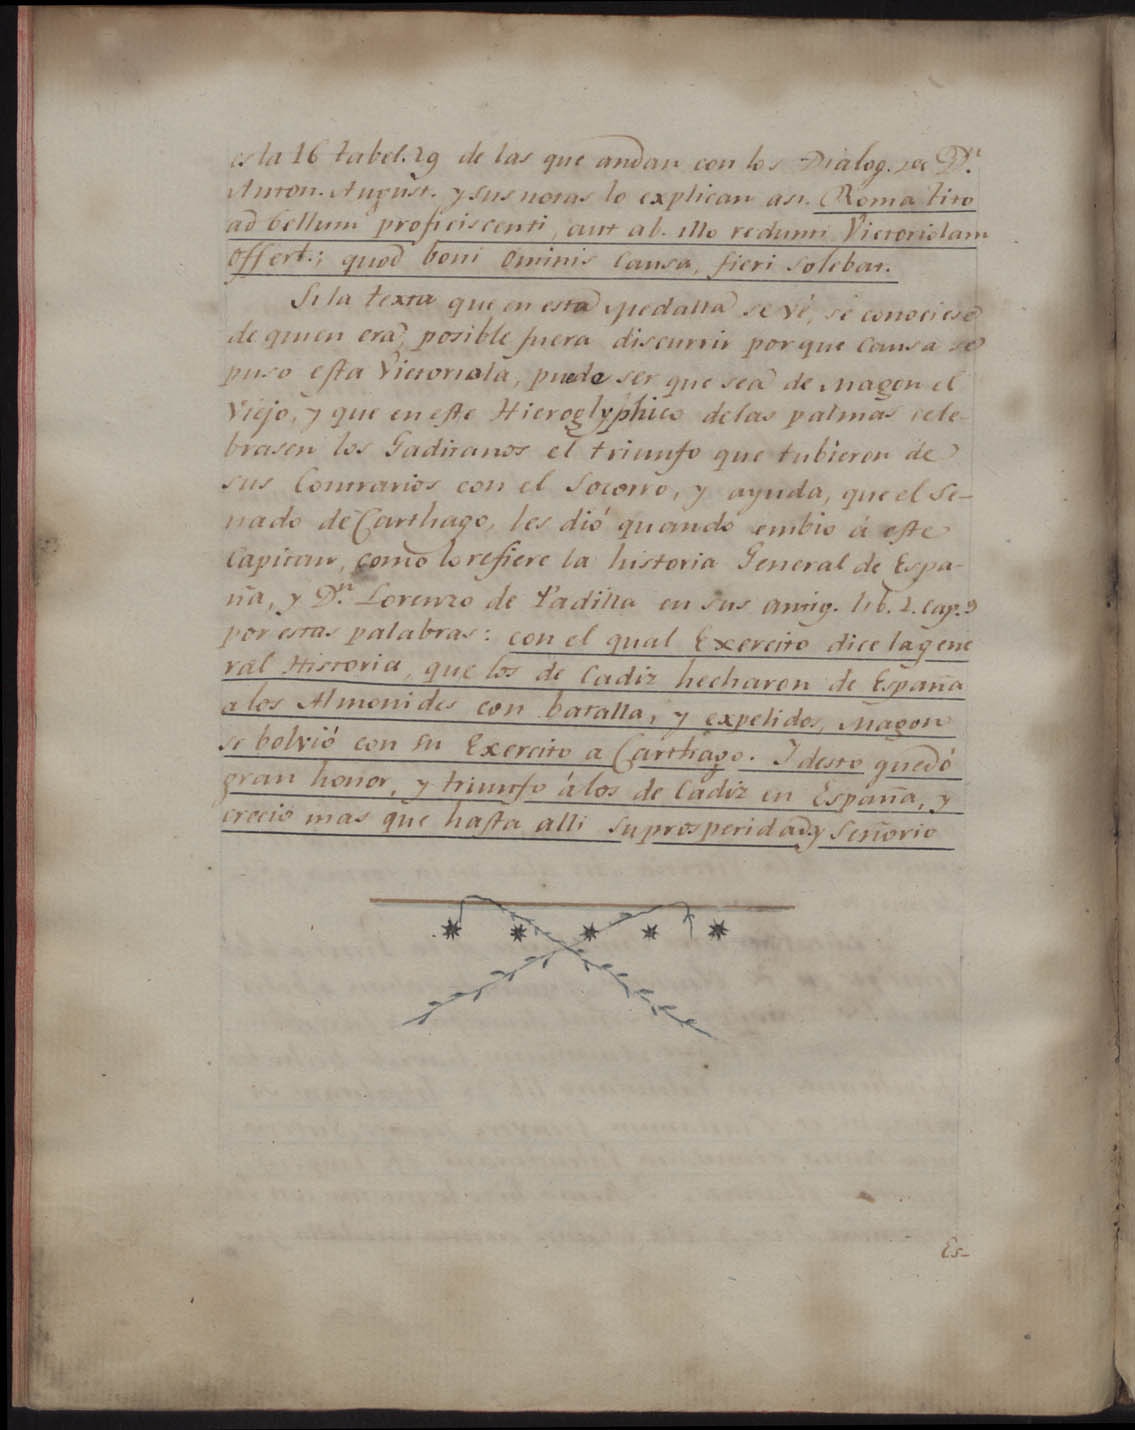 es la 16 tabel. 29 de las que andan con los Dialog. de D.n
Anton. August. y sus notas lo explican asi. Roma tito
ad bellum proficiscenti, aut ab. illo redunti Victoriolam
Offert.; quod boni Ominis Causa, fieri solebat.
Si la texta que en esta Medalla se vé, se conociese
de quien era, posible fuera discurrir por que Causa se
puso esta Victoriola, puede ser que sea de Magon el
Viejo, y que en este Hieroglyphico de las palmas cele-
brasen los Gaditanos el triunfo que tubieron de
sus Contrarios con el Socorro, y ayuda, que el Se-
nado de Carthago, les dió quando embio á este
Capitan, como lo refiere la historia General de Espa-
ña, y D.n Lorenzo de Padilla en sus antig. lib. 2. cap. 9
por estas palabras: con el qual Exercito dice la gene
ral Historia, que los de Cadiz hecharon de España
a los Almonides con batalla, y expelidos, Magon
se bolvió con su Exercito a Carthago. Y desto quedó
gran honor, y triunfo á los de Cadiz en España, y
crecio mas que hasta alli su prosperidad y Señorio
Es-